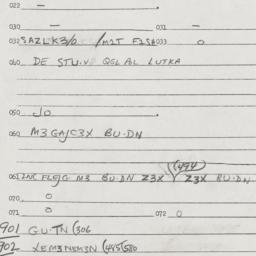 022 —
030 — 031 —
032 SAZLK3/0 /M2T F1SA 033 0
040 DE STU.V QGLAL LUTKA
050 JO
060 M3GAJC3X BU.DN
061 FLEJG M3 BU.DN Z3X (494) Z3X BU.DN
070 0
071 0 072 0
901 GU.TN (306
902 XEM3NEM3N (445(580